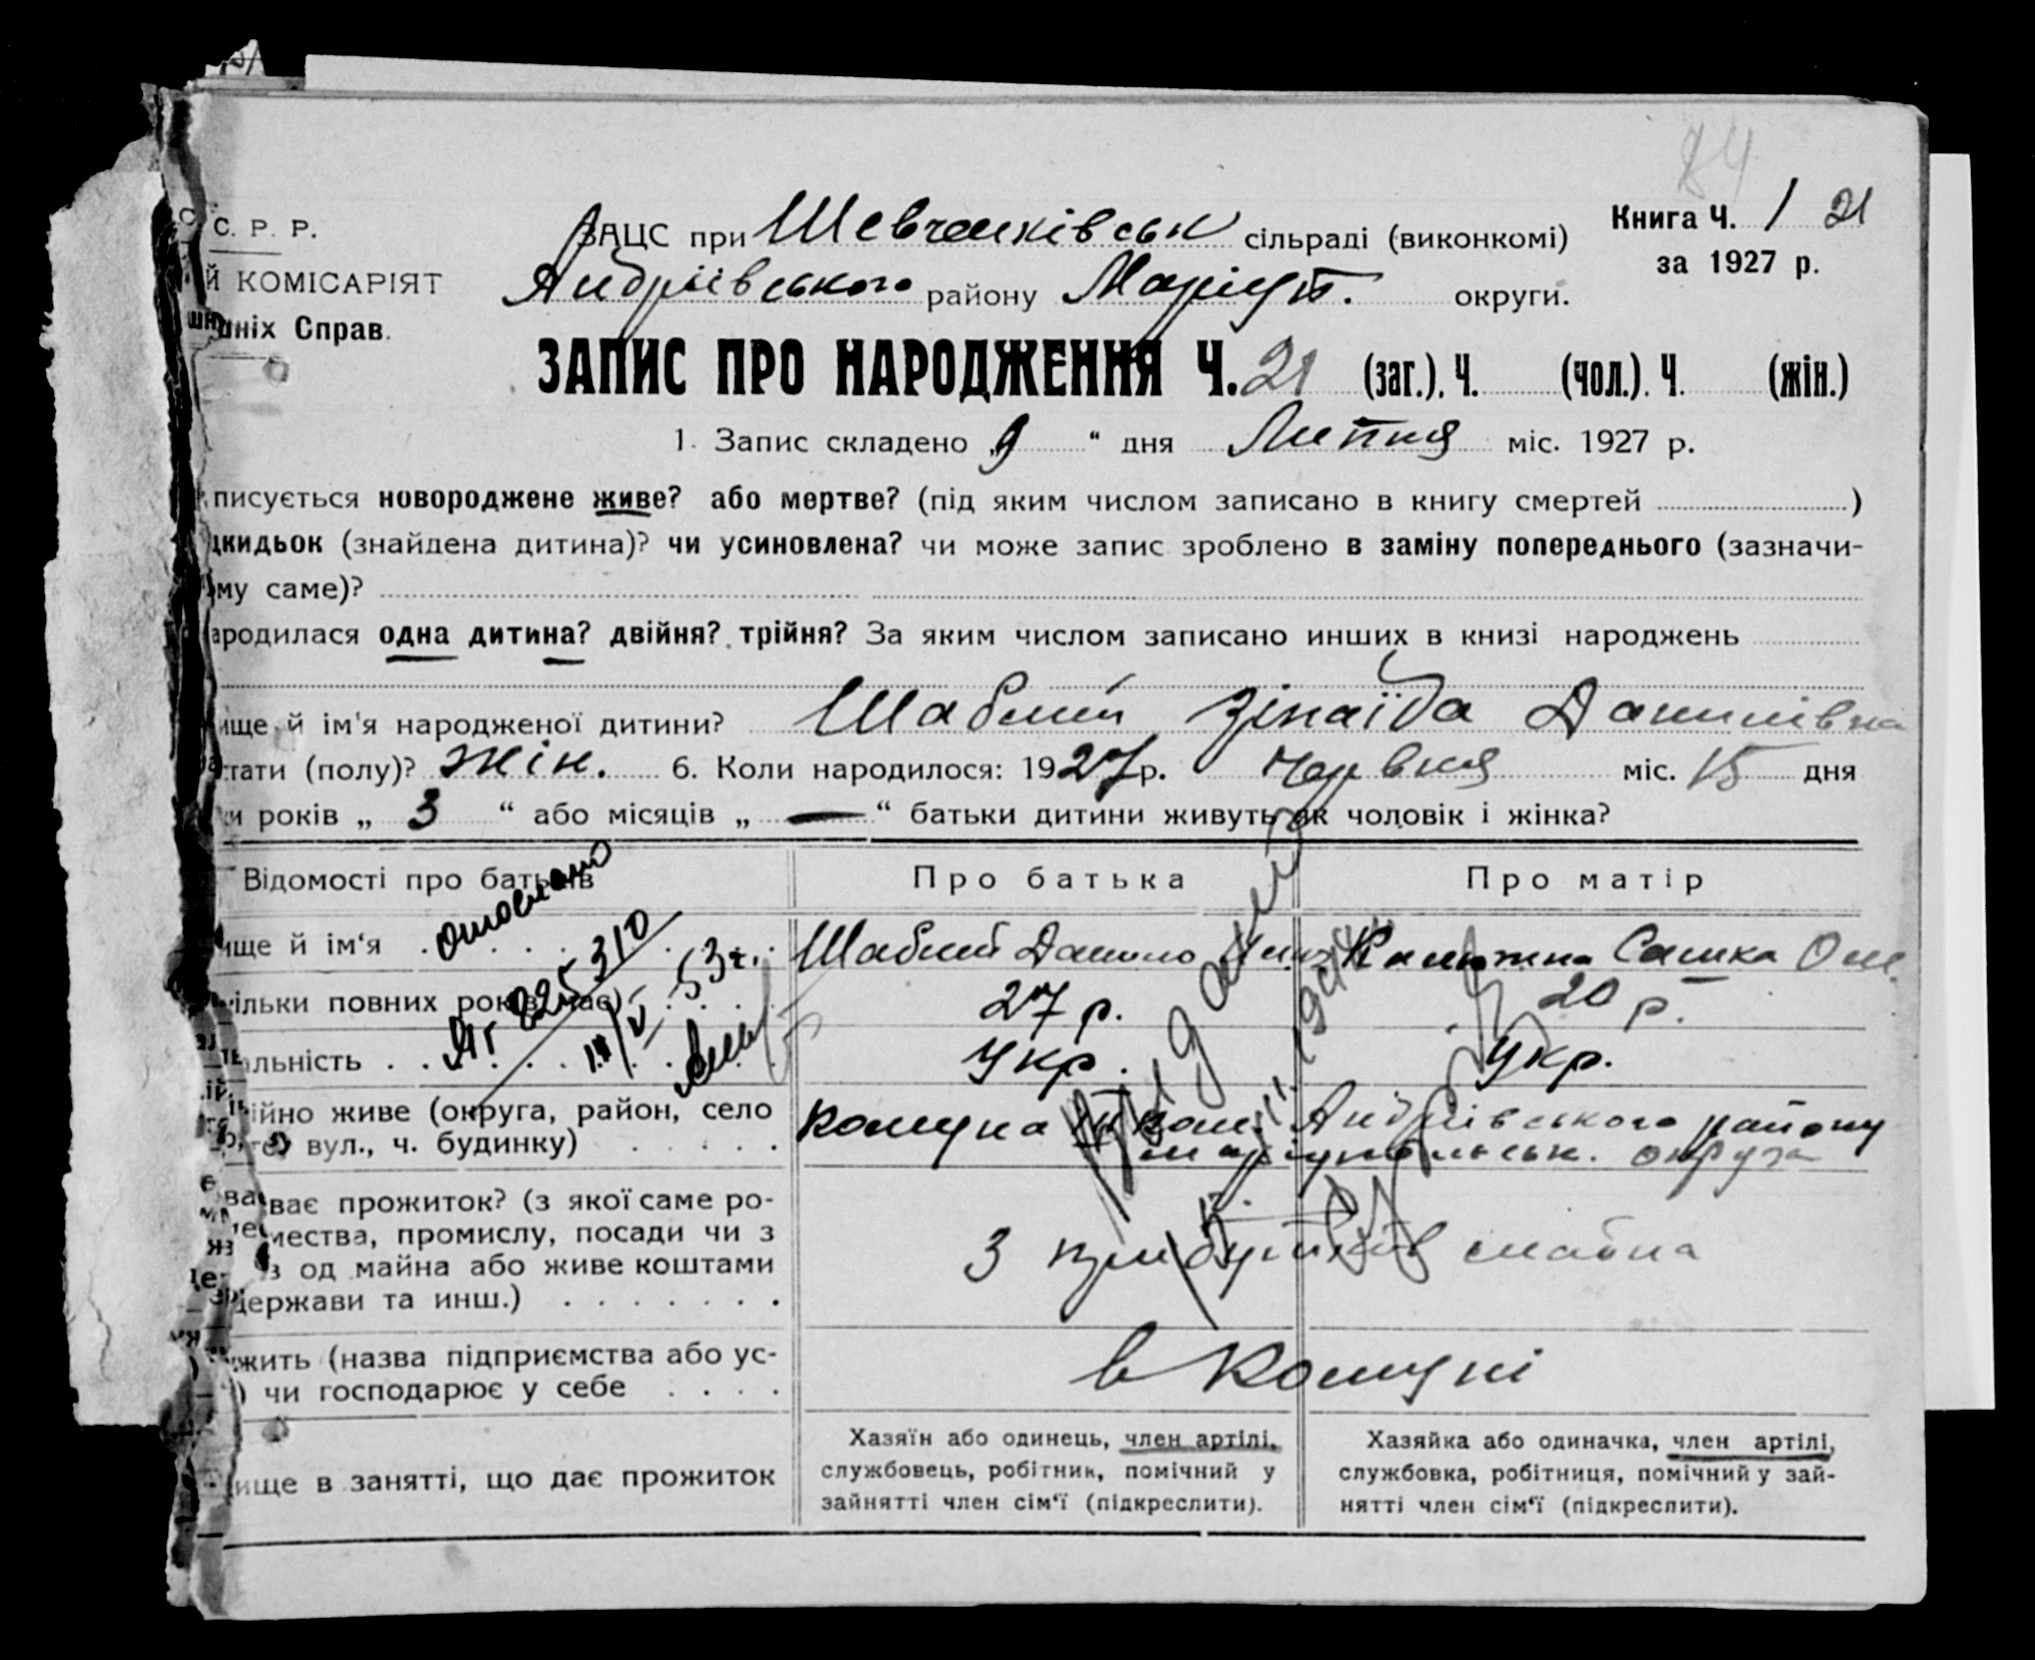 84
С. Р. Р.
Й КОМІСАРІЯТ
шніх Справ.
ЗАЦС при Шевченківськ сільраді (виконкомі)
Книга Ч. 1 21
за 1927 р.
Андріївського району Маріуп. округи.
ЗАПИС ПРО НАРОДЖЕННЯ Ч. 21 (заг.). Ч. (чол.). Ч. (жін.)
1. Запис складено „9“ дня Липня міс. 1927 р.
писується новороджене живе? або мертве? (під яким числом записано в книгу смертей )
дкидьок (знайдена дитина)? чи усиновлена? чи може запис зроблено в заміну попереднього (зазначи-
му саме)?
ародилася одна дитина? двійня? трійня? За яким числом записано инших в книзі народжень
ище й ім'я народженої дитини? Шаблий Зінаїда Данилівна
тати (полу)? жін. 6. Коли народилося: 1927 р. червня міс. 15 дня
и років „ 3 “ або місяців „ — “ батьки дитини живуть як чоловік і жінка?
Відомості про батьків
Про батька
Про матір
ище й ім‘я
Шаблий Данило
Сашка
ільки повних років має)
27 р.
20 р.
альність
Укр.
Укр.
ійно живе (округа, район, село
вул., ч. будинку)
Комуна Андріївського району
маріупольськ. округа
ває прожиток? (з якої саме ро-
мества, промислу, посади чи з
з од майна або живе коштами
держави та инш.)
З прибутків майна
жить (назва підприємства або ус-
) чи господарює у себе
в Комуні
ище в занятті, що дає прожиток
Хазяїн або одинець, член артілі,
службовець, робітник, помічний у
зайнятті член сім‘ї (підкреслити).
Хазяйка або одиначка, член артілі,
службовка, робітниця, помічний у зай-
нятті член сім‘ї (підкреслити).
825310
53 г.